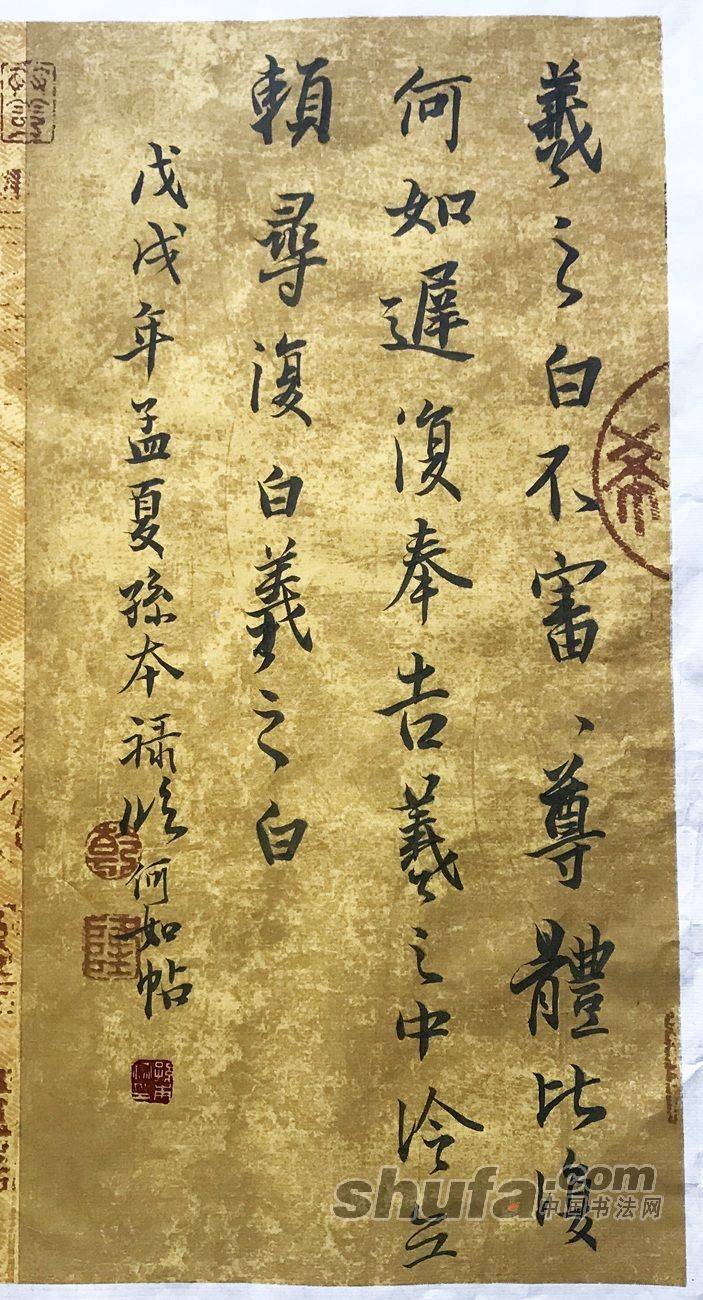 羲之白不審、尊體比復
何如遲復奉告羲之中冷無
賴尋復白羲之白
戊戌年孟夏孫本祿臨何如帖
shufa.com
中国书法网